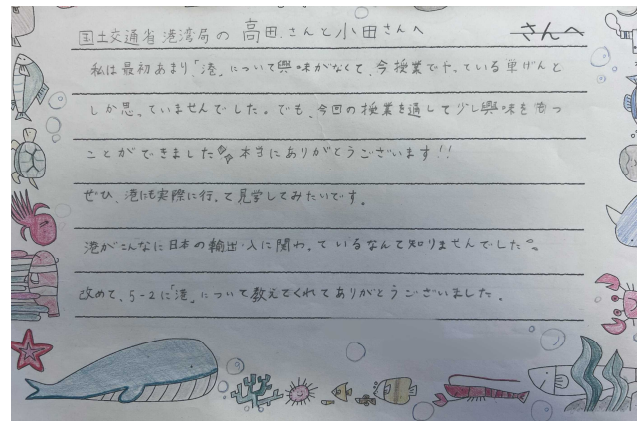 国土交通省港湾局の 高田さんと小田さんへ さんへ
私は最初あまり「港」について興味がなくて、今授業でやっている単げんと
しか思っていませんでした。でも、今回の授業を通して少し興味をもつ
ことができました 本当にありがとうございます!!
ぜひ、港にも実際に行って見学してみたいです。
港がこんなに日本の輸出・入に関わっているなんて知りませんでした。
改めて、5-2に「港」について教えてくれてありがとうございました。